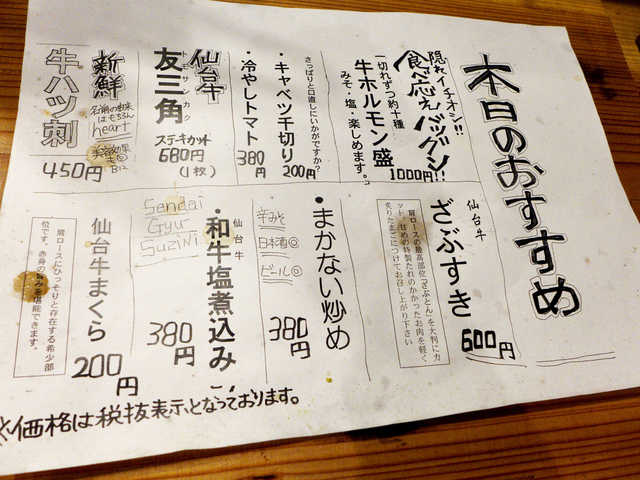 本日のおすすめ
隠れイチオシ!!
食べ応えバッグン!!
一切れずつ約十種
牛ホルモン盛
みそ・塩・楽しめます。
1000円!!
さっぱりと口直しにいかがですか?
・キャベツ千切り
200円
・冷やしトマト
380円
仙台牛
トモサンカク
友三角
ステーキカット
680円
(1枚)
新鮮
牛ハツ刺
名前の由来
はもちろん
heart
美容効果
◎
B12
450円
仙台牛
ざぶすき
肩ロースの最高部位「ざぶとん」を大判にカ
ット、甘めの特製だれのかかったお肉を軽く
炙りたまごにつけてお召し上がり下さい
600円
・まかない炒め
辛みそ
日本酒◎
ビール◎
380円
仙台牛
・和牛塩煮込み
Sendai
Gyu
Suzini
380円
仙台牛まくら
肩ロースにひっそりと存在する希少部
位です。赤身の旨みを堪能できます。
200円
※価格は税抜表示となっております。